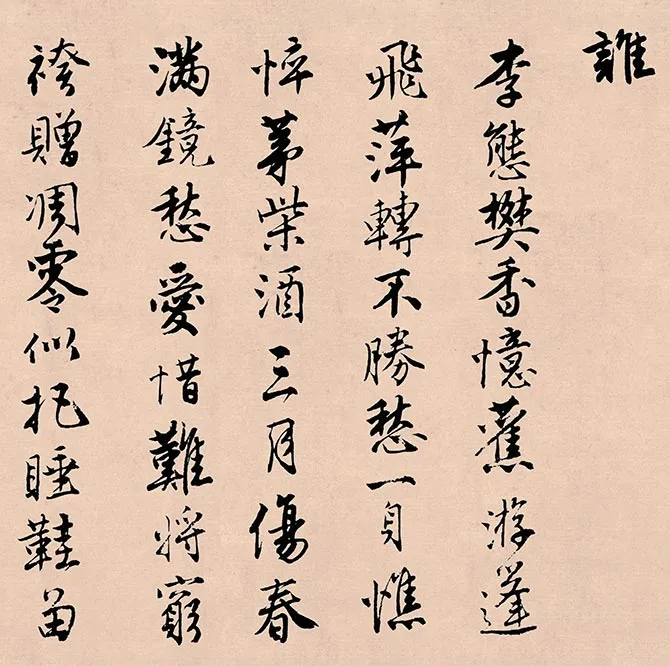 誰
李態樊香憶舊游蓬
飛萍轉不勝愁一身憔
悴茅柴酒三月傷春
滿鏡愁愛惜難將窮
袴贈凋零似把睡鞋留